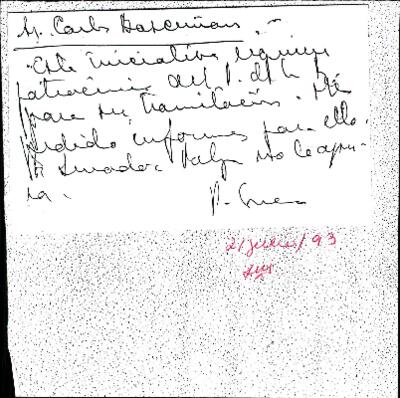 Sr. Carlos Bascuñan.
Este iniciativa requiere
patrocinio del P. de la R.
para su tramitación. He
pedido informes para ello.
El Senador no le apu-
ra.
P.
21/junio/93